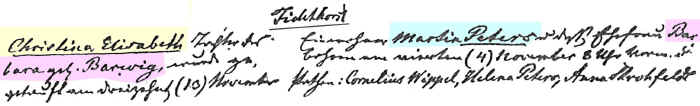 Fichthorst
Christina Elisabeth Tochter des Einwohner Martin Peters u. desst Ehefrau Bar-
bara geb. Barwig, wurde ge, bohren am vierten (4) November 8 Uhr Vorm. u.
getauft am dreizehnt (13) November Pathen: Cornelius Wippel, Helena Peters, Anna Strohfeldt